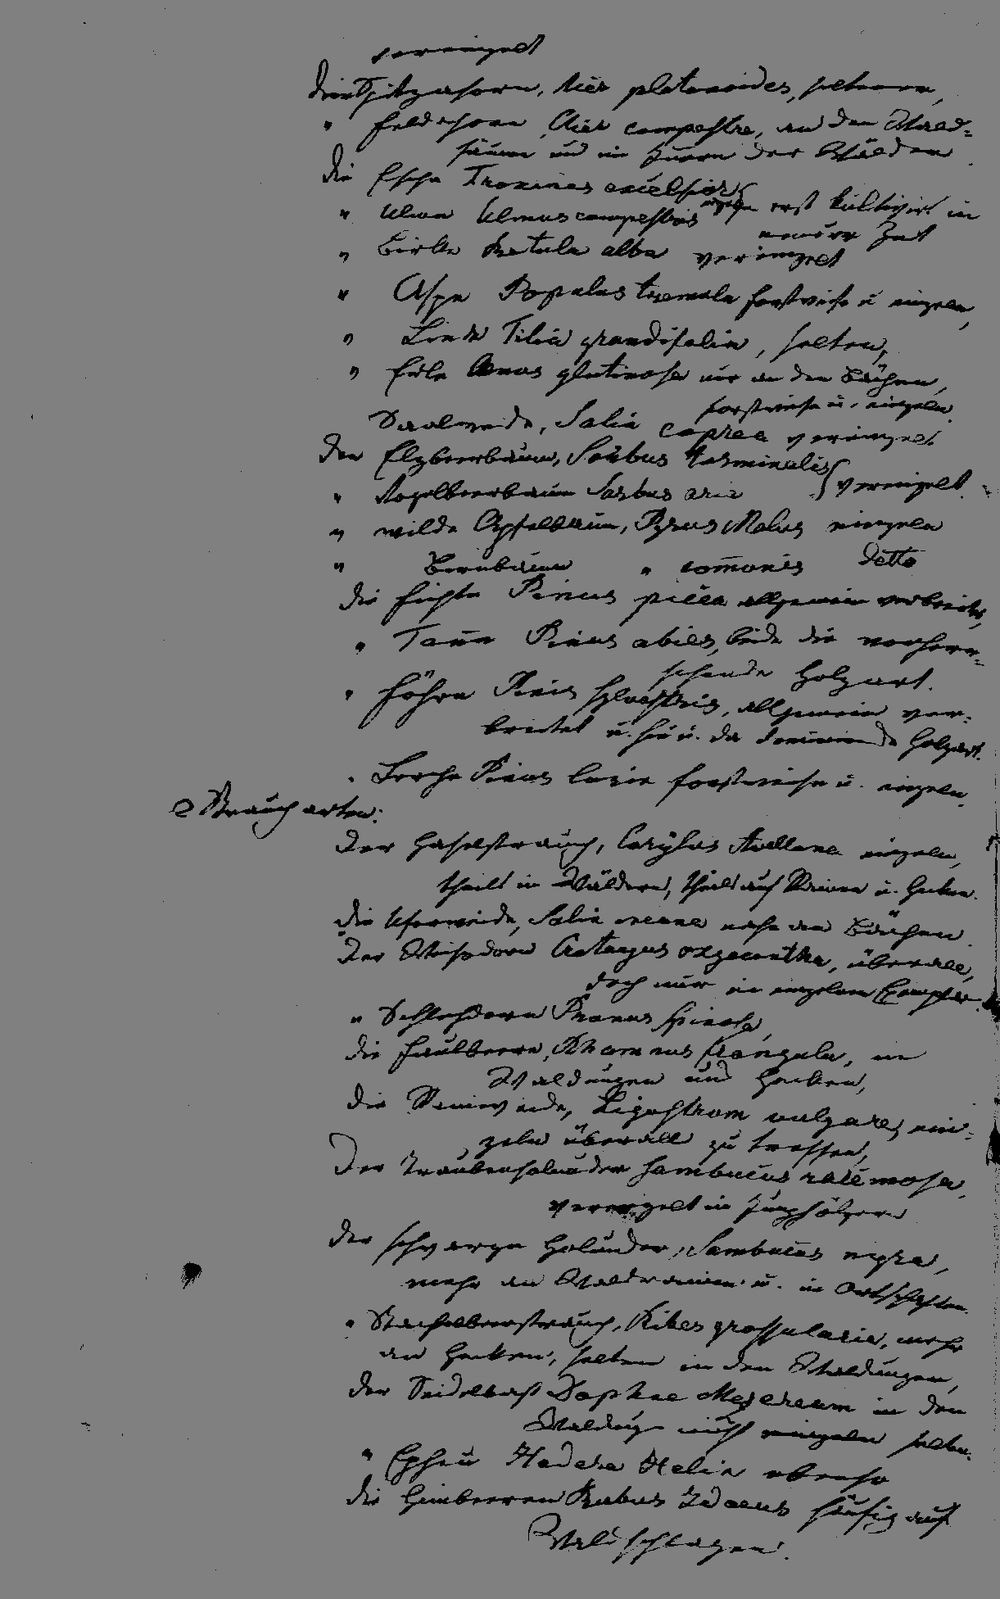 vereinzelt
der Spitzahorn, Acer platanoides, seltener,
" Feldahorn Acer campestre, an den Wald-
säumen und im Innern der Wälder.
die Esche Fraxinus excelsior
" Ulme Ulmus campestris erst kultivirt in
neuerer Zeit
" Birke Betula alba vereinzelt
" Aspe Populus tremula horstweise u einzeln,
" Linde Tilia grandifolia, selten,
" Erle Alnus glutinosa nur an den Bächen,
horstweise u. einzeln.
Saalweide, Salix caprea vereinzelt
Der Elzbeerbaum, Sorbus torminalis
" Vogelbeerbaum Sorbus aria vereinzelt.
" wilde Apfelbaum, Pyrus Malus einzeln
" Birnbaum " comonis detto
die Fichte Pinus picea allgemein verbreitet,
" Tane Pinus abies, beide die vorherr-
schende Holzart.
" Föhre Pinis sylvestris, allgemein ver-
breitet u. hie u. da dominirende Holzart.
" Lerche Pinus larix horstweise u. einzeln.
2 Straucharten:
Der Haselstrauch, Corylus Avellana einzeln,
theils in Wäldern, theils auf Rainen u. Hecken.
die Uferweide, Salix nahe an Bächen.
Der Weisdorn Crategus oxyacantha, überall,
doch nur in einzelnen Exemplar.
" Schlehdorn Prunus spinosa,
die Faulbeere, Rhamnus frangula, in
Waldungen und Hecken,
die Rainweide, Ligustrum vulgare, ein-
zeln überall zu treffen,
Der Traubenholunder Sambucus racemosa,
vereinzelt in Junghölzern
der schwarze Holunder, Sambucus nigra,
mehr an Waldrainen u. in Ortschaften.
" Stachelbeerstrauch, Ribes grossularia, mehr
an Hecken, selten in den Waldungen,
der Seidelbast Daphne Mezereum in den
Waldung nicht einzeln selten.
" Epheu Hedera Helix ebenso
die Himbeeren Rubus Idaeus häufig auf
Waldschlagen.